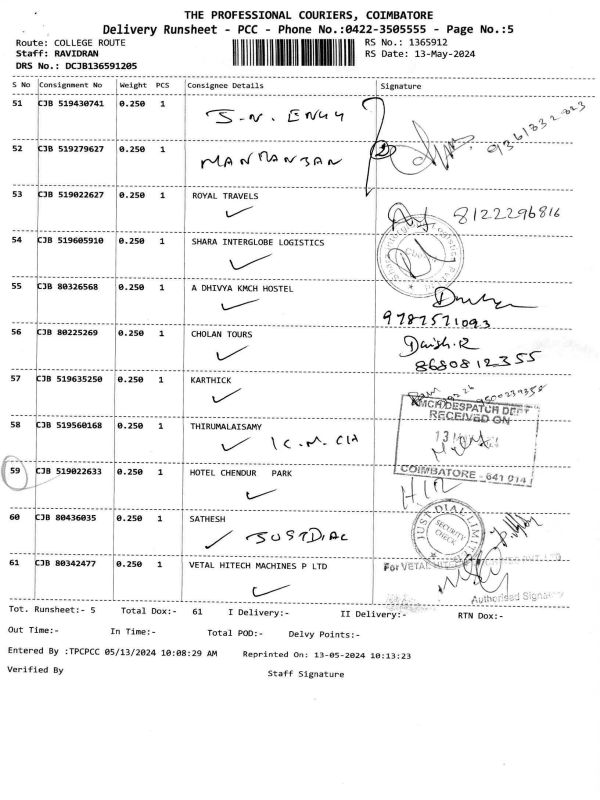 THE PROFESSIONAL COURIERS, COIMBATORE
Delivery Runsheet - PCC - Phone No.:0422-3505555 - Page No.:5
Route: COLLEGE ROUTE RS No.: 1365912
Staff: RAVIDRAN RS Date: 13-May-2024
DRS No.: DCJB136591205
S No Consignment No Weight PCS Consignee Details Signature
51 CJB 519430741 0.250 1 S.N. ENGG
9361832823
52 CJB 519279627 0.250 1 MANMANJAN 2
53 CJB 519022627 0.250 1 ROYAL TRAVELS
8122296816
54 CJB 519605910 0.250 1 SHARA INTERGLOBE LOGISTICS
55 CJB 80326568 1 A DHIVYA KMCH HOSTEL
9787571093
56 CJB 80225269 0.250 1 CHOLAN TOURS Daish.R
8680812355
57 CJB 519635250 0.250 1 KARTHICK
KMCH DESPATCH DEPT
RECEIVED ON
58 CJB 519560168 0.250 1 THIRUMALAISAMY
K.M.CH
13
59 CJB 519022633 0.250 1 HOTEL CHENDUR PARK COIMBATORE - 641 014
60 CJB 80436035 0.250 1 SATHESH
JUSTDIAL
JUST DIAL LIMITED
SECURITY CHECK
61 CJB 80342477 0.250 1 VETAL HITECH MACHINES P LTD For VETAL
Authorised Signatory
Tot. Runsheet:- 5 Total Dox:- 61 I Delivery:- II Delivery:- RTN Dox:-
Out Time:- In Time:- Total POD:- Delvy Points:-
Entered By :TPCPCC 05/13/2024 10:08:29 AM Reprinted On: 13-05-2024 10:13:23
Verified By Staff Signature